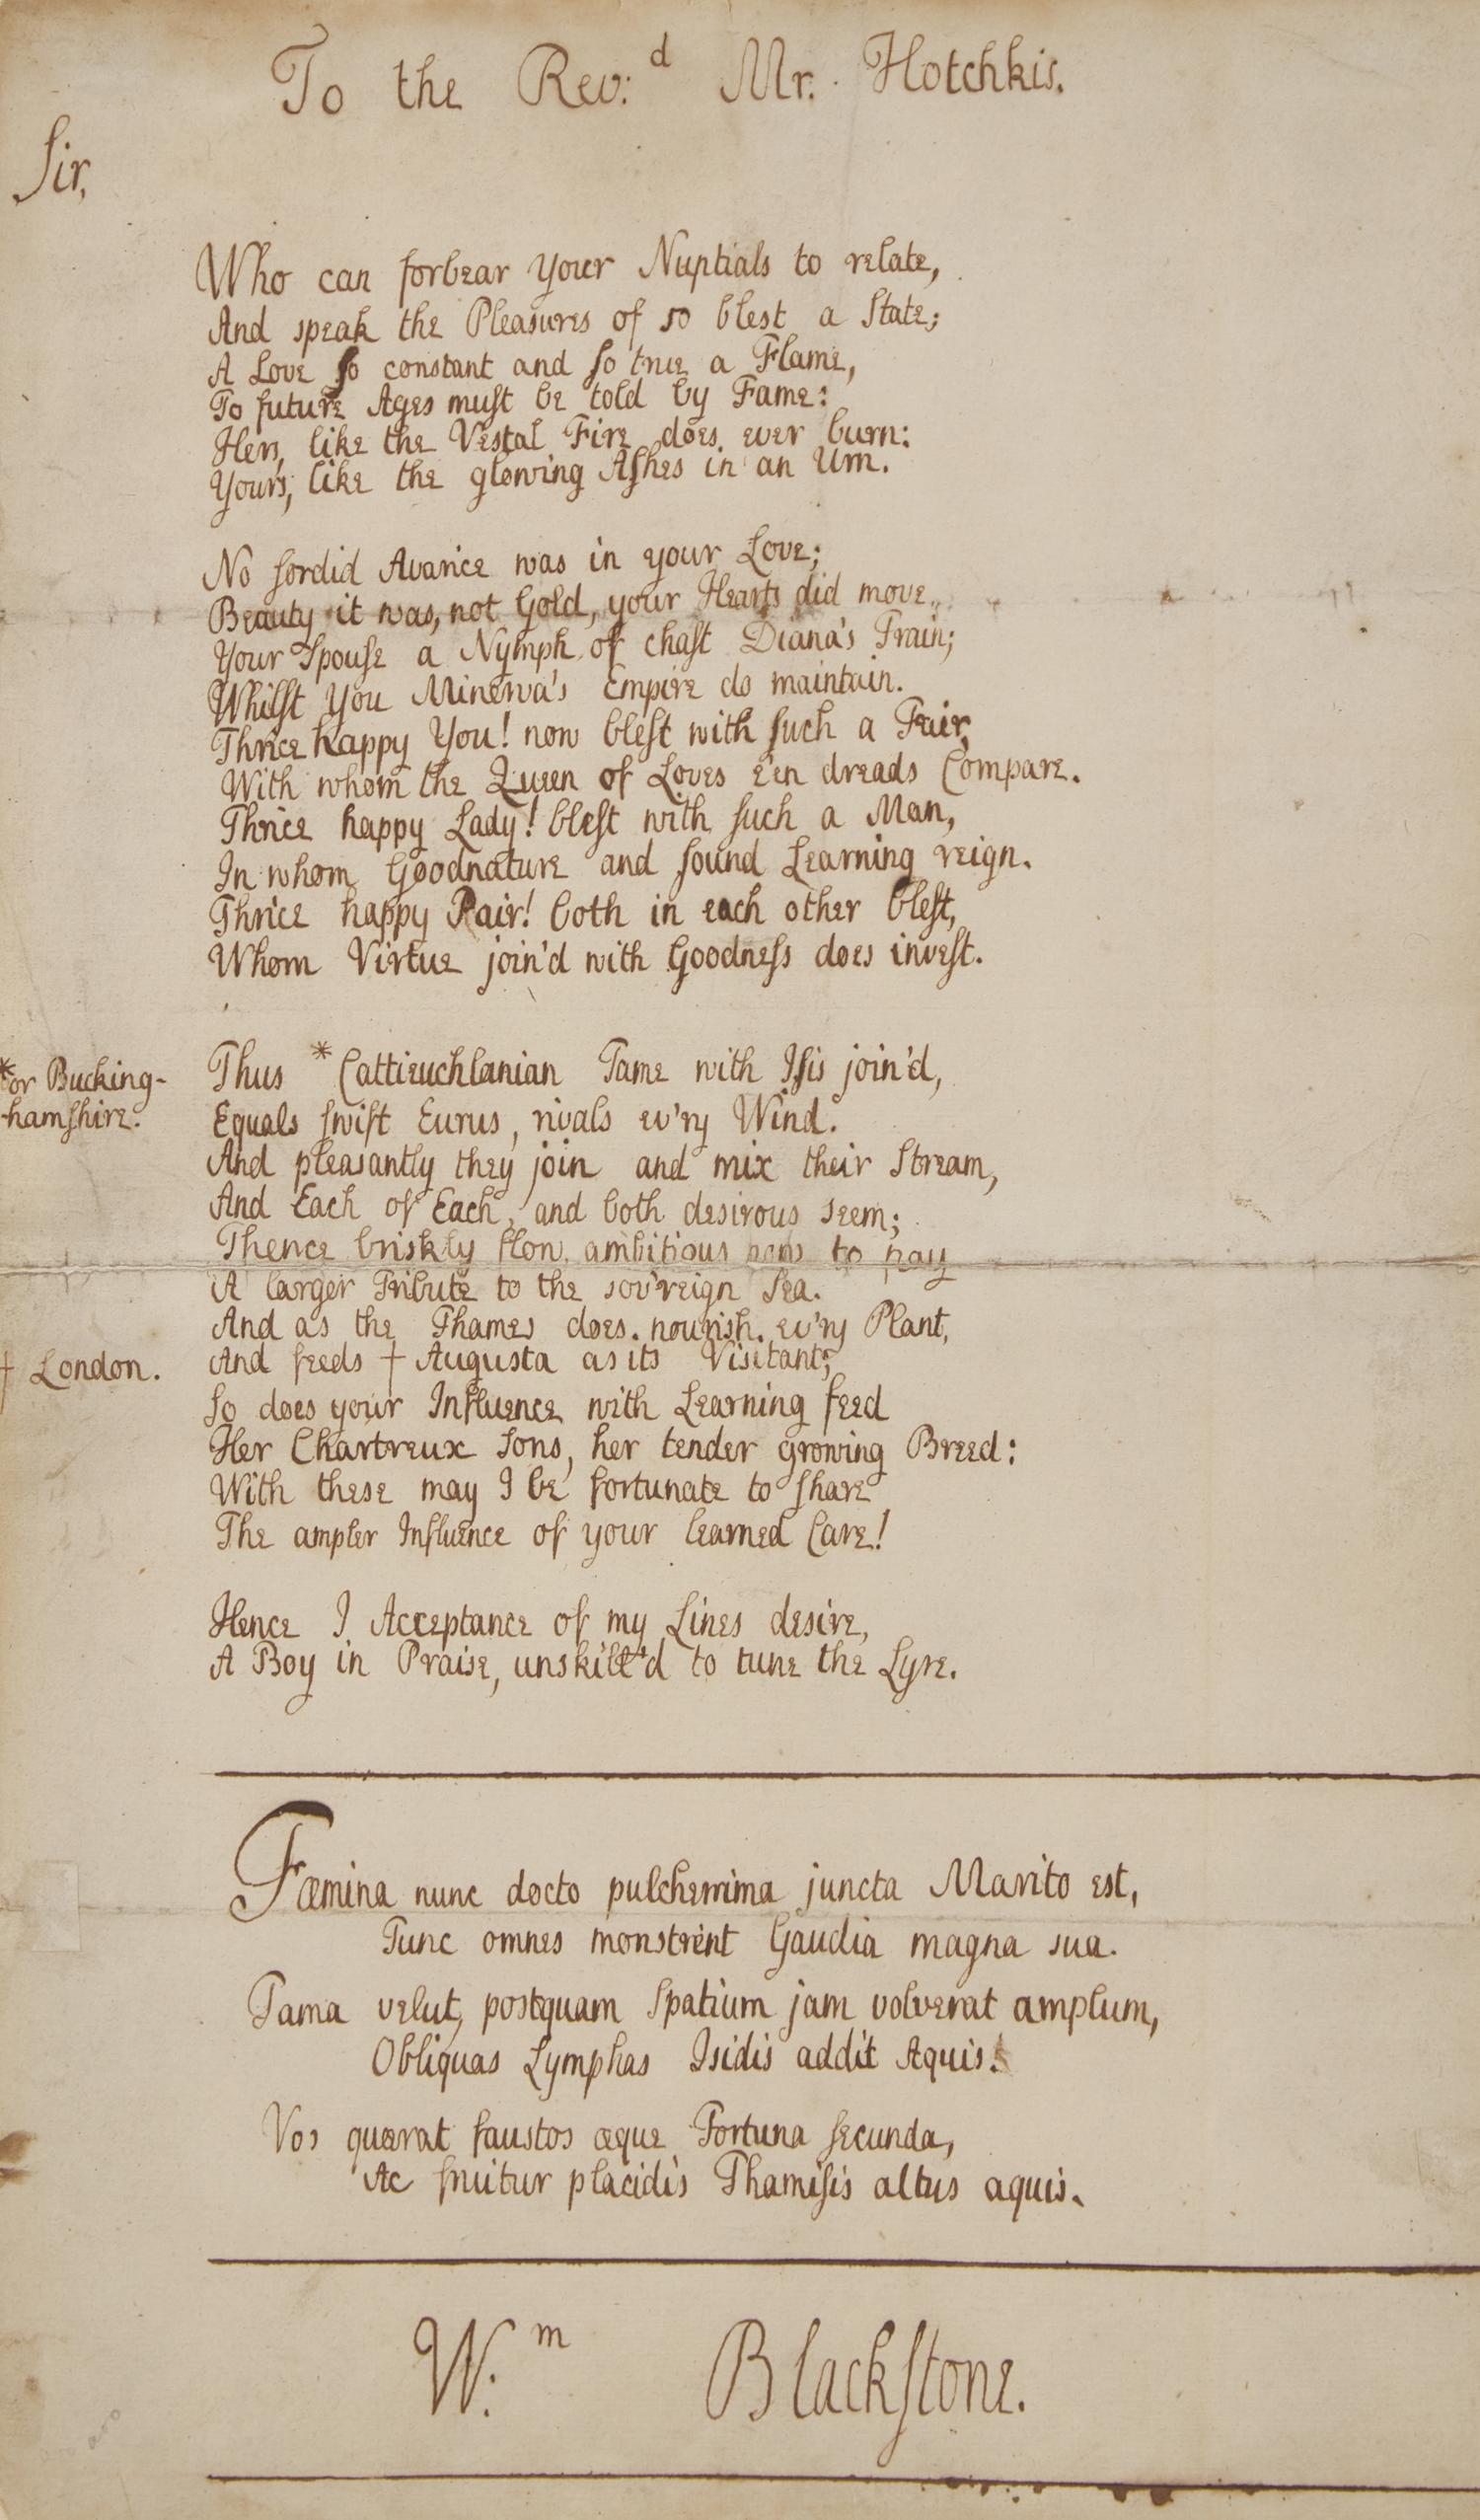 To the Rev:d Mr. Hotchkis.
Sir,
Who can forbear your Nuptials to relate,
And speak the Pleasures of so blest a State;
A Love so constant and so true a Flame,
To future Ages must be told by Fame:
Hers, like the Vestal Fire does ever burn:
Yours, like the glowing Ashes in an Urn.
No sordid Avarice was in your Love;
Beauty it was, not Gold, your Hearts did move.
Your Spouse a Nymph of chast Diana's Train;
Whilst You Minerva's Empire do maintain.
Thrice happy You! now blest with such a Fair,
With whom the Queen of Loves e'en dreads Compare.
Thrice happy Lady! blest with such a Man,
In whom Goodnature and sound Learning reign.
Thrice happy Pair! both in each other blest,
Whom Virtue join'd with Goodness does invest.
Thus *Cattieuchlanian Tame with Isis join'd,
*or Bucking-
-hamshire.
Equals swift Eurus, rivals ev'ry Wind.
And pleasantly they join and mix their Stream,
And Each of Each, and both desirous seem;
Thence briskly flow, ambitious now to pay
A larger Tribute to the sov'reign Sea.
And as the Thames does nourish ev'ry Plant,
And feeds † Augusta as its Visitant;
† London.
So does your Influence with Learning feed
Her Chartreux Sons, her tender growing Breed:
With these may I be fortunate to share
The ampler Influence of your learned Care!
Hence I Acceptance of my Lines desire,
A Boy in Praise, unskill'd to tune the Lyre.
Fœmina nunc docto pulcherrima juncta Marito est,
Tunc omnes monstrent Gaudia magna sua.
Tama velut, postquam Spatium jam volverat amplum,
Obliquas Lymphas Isidis addit Aquis.
Vos quærat faustos æque Fortuna secunda,
Ac fruitur placidis Thamisis altus aquis.
W:m Blackstone.